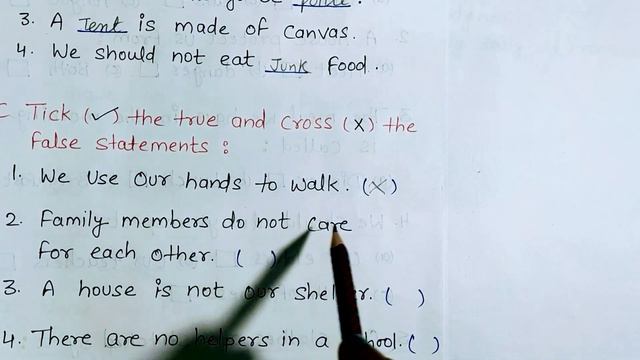 3. A Tent is made of canvas.
4. We should not eat Junk food.
C Tick (✓) the true and cross (X) the
false statements :
1. We use our hands to walk. (X)
2. Family members do not care
for each other. ( )
3. A house is not our shelter. ( )
4. There are no helpers in a school. ( )